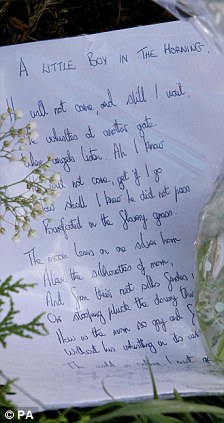 A LITTLE BOY IN THE MORNING.
He will not come, and still I wait.
He whistles at another gate
where angels listen. Ah I know
He will not come, yet if I go
How shall I know he did not pass
Barefooted in the flowery grass.
The moon leans on one silver horn
Above the silhouettes of morn,
And from their nest sills finches
Or stooping pluck the downy
How is the morn so gay and
Without his whistling in its
The
© PA